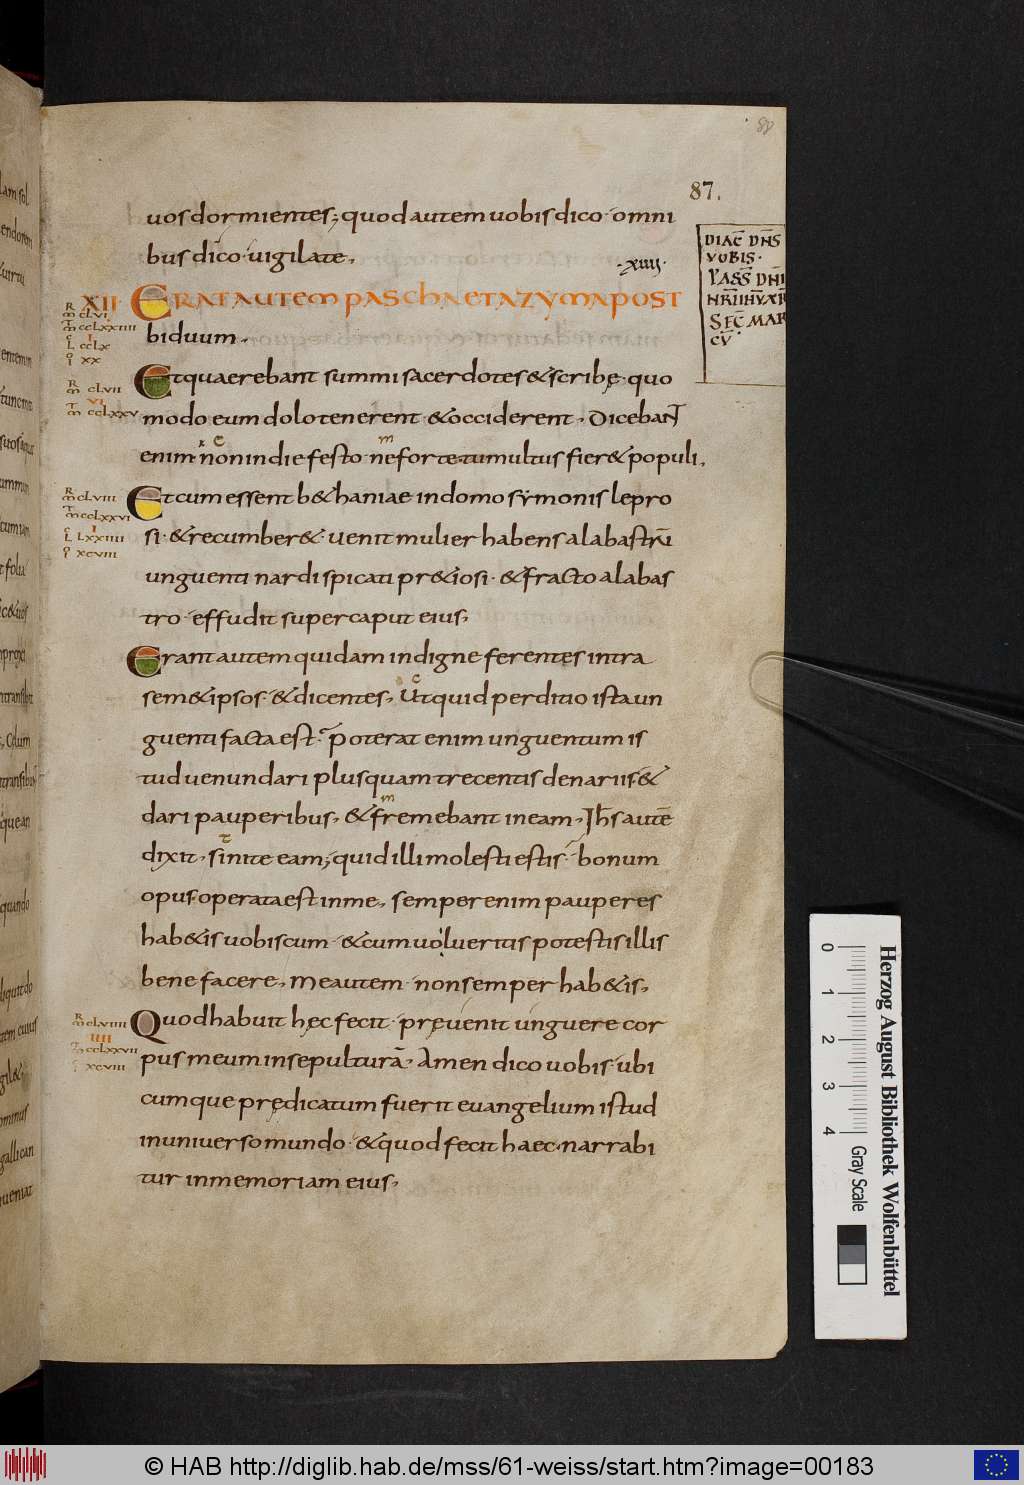 88
87.
uos dormientes; quod autem uobis dico · omni
bus dico · uigilate,
·xiiii·
DIAC̄ DN̄S
VOBIS·
PASS̄ DN̄I
N̄RI IH̄V XP̄I
SEC̄ MAR
CV̄
XII ERAT AUTEM PASCHA ET AZYMA POST
R̄ m̄ clvi
T̄ m̄ cclxxiiii
I
L cclx
I xx
biduum,
R̄ m̄ clvii
VI
T̄ m̄ cclxxv
Et quaerebant summi sacerdotes & scribę · quo
modo eum dolo tenerent · & occiderent, Diceban̄t
enim · non in die festo · ne forte tumultus fier& populi,
R̄ m̄ clviii
T̄ m̄ cclxxvi
I
L lxxiiii
I xcviii
Et cum essent b&haniae in domo symonis lepro
si · & recumber& · uenit mulier habens alabastrū
unguenti nardi spicati pr&iosi · & fracto alabas
tro · effudit super caput eius,
Erant autem quidam indigne ferentes intra
sem&ipsos · & dicentes, Ut quid perditio ista un
guenti facta est? Poterat enim unguentum is
tud uenundari plusquam trecentis denariis · &
dari pauperibus, & fremebant in eam, Ih̄s autē
dixit, sinite eam; quid illi molesti estis · bonum
opus operata est in me, semper enim pauperes
hab&is uobiscum · & cum uolueritis potestis illis
bene facere, me autem · non semper hab&is,
R̄ m̄ clviiii
IIII
T̄ m̄ cclxxvii
I xcviii
Quod habuit hęc fecit · pręuenit unguere cor
pus meum in sepulturā, Amen dico uobis · ubi
cumque prędicatum fuerit euangelium istud
in uniuerso mundo · & quod fecit haec · narrabi
tur in memoriam eius,
0 1 2 3 4
Gray Scale
Herzog August Bibliothek Wolfenbüttel
© HAB http://diglib.hab.de/mss/61-weiss/start.htm?image=00183